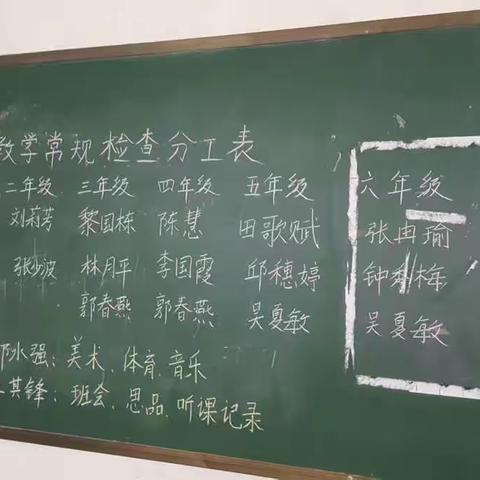 教学常规检查分工表
二年级 三年级 四年级 五年级 六年级
刘莉芳 黎国栋 陈慧 田歌赋 张冉瑜
张少波 林月平 李国霞 邱穗婷 钟梅
郭春燕 郭春燕 吴夏敏 吴夏敏
水强：美术、体育、音乐
其锋：班会、思品、听课记录